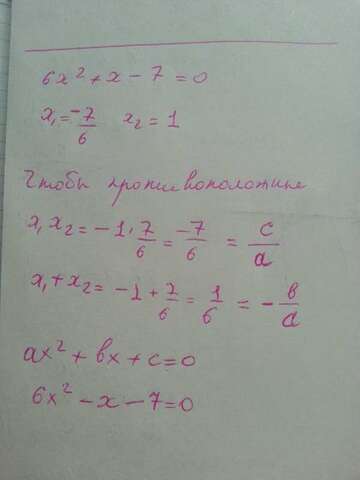 6x² + x − 7 = 0
x₁ = −7/6 x₂ = 1
Чтобы противоположные
x₁ x₂ = −1 · 7/6 = −7/6 = c/a
x₁ + x₂ = −1 + 7/6 = 1/6 = − b/a
ax² + bx + c = 0
6x² − x − 7 = 0